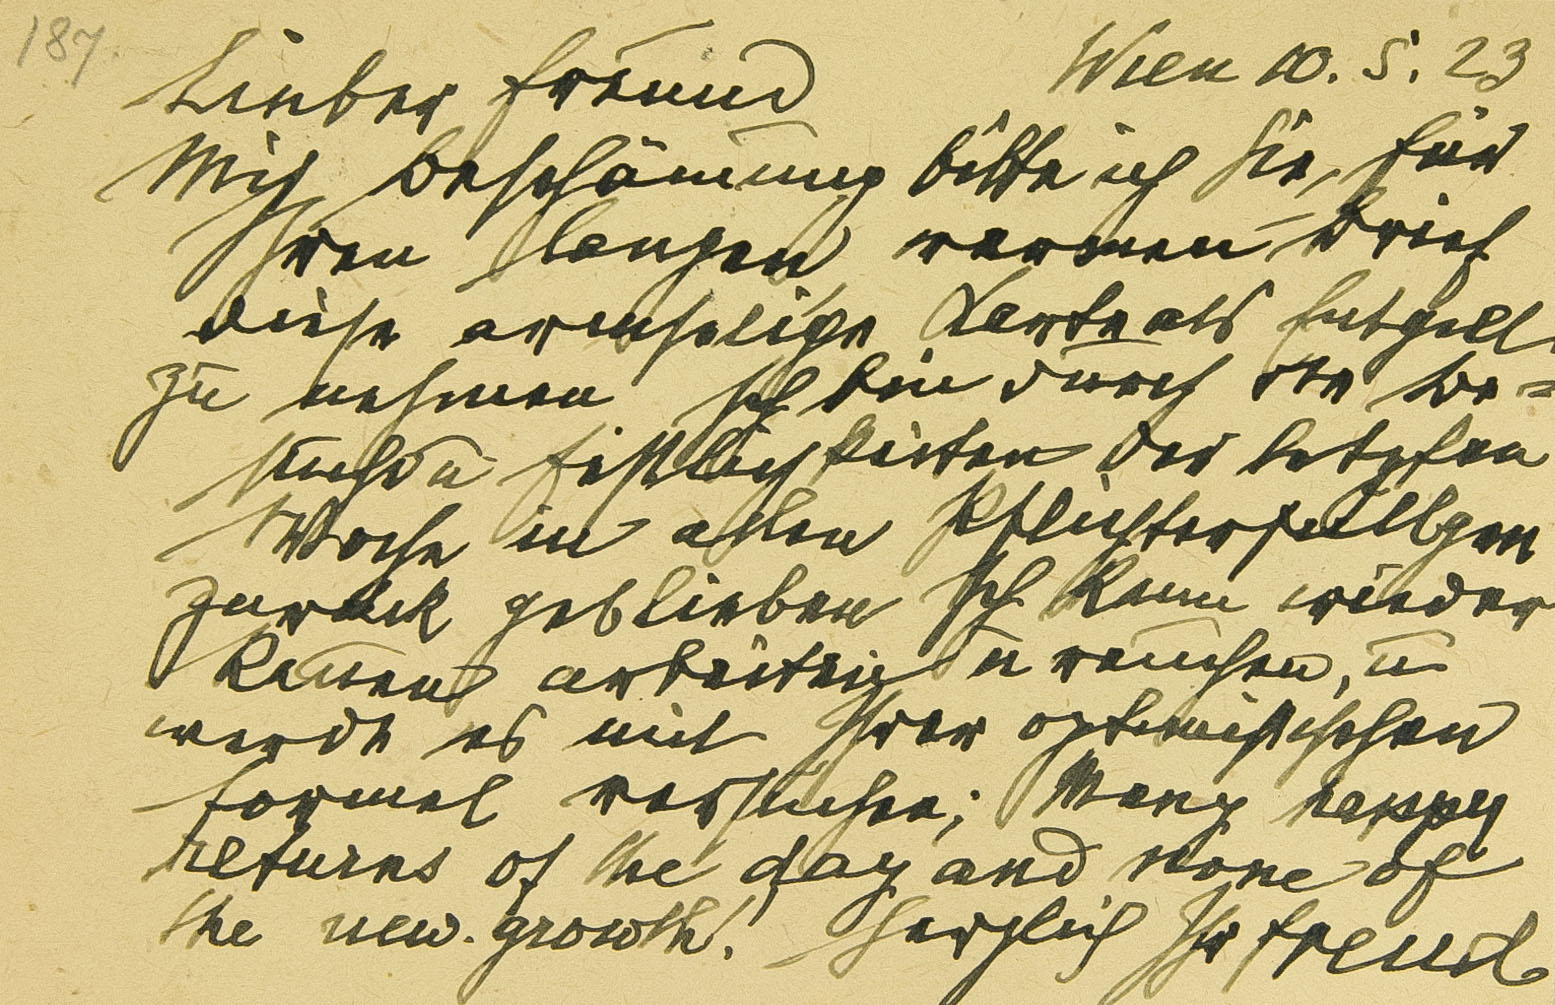 187.
Wien 10. 5. 23
Lieber Freund
Mit Beschämung bitte ich Sie, für
Ihren langen warmen Brief
diese armselige Karte als Entgelt
zu nehmen Ich bin durch die Be=
suche u Festlichkeiten der letzten
Woche in allen Pflichterfüllgen
zurück geblieben Ich kann wieder
kauen arbeiten u rauchen, u
werde es mit Ihrer optimistischen
Formel versuchen; Many happy
returns of the day and none of
the new growth! Herzlich Ihr Freud